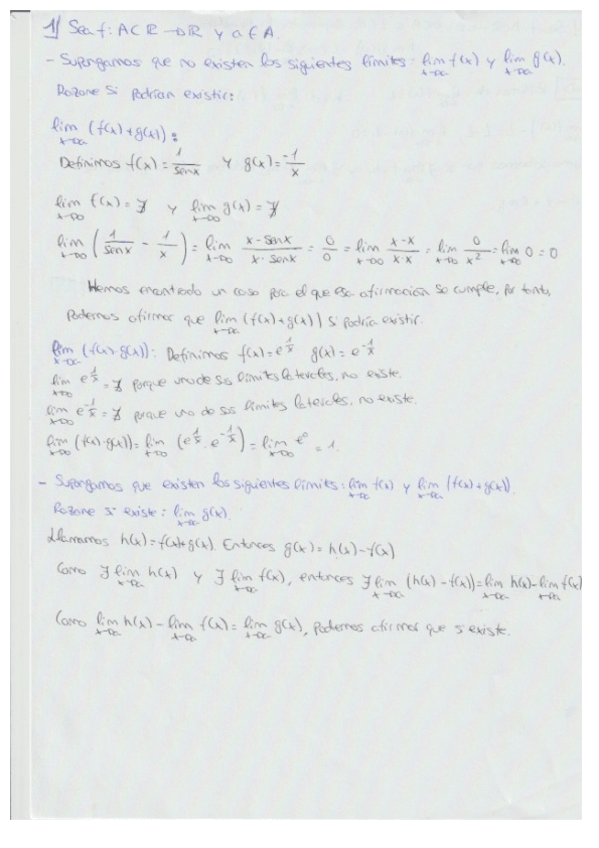 1) Sea f: A⊂ℝ→ℝ y a∈A.
- Supongamos que no existen los siguientes límites: lim x→a f(x) y lim x→a g(x).
Razone si podrían existir:
lim x→a (f(x)+g(x)):
Definimos f(x) = 1/senx y g(x) = -1/x
lim x→0 f(x) = ∄ y lim x→0 g(x) = ∄
lim x→0 (1/senx - 1/x) = lim x→0 (x-senx)/(x·senx) = 0/0 = lim x→0 (x-x)/(x·x) = lim x→0 0/x² = lim x→0 0 = 0
Hemos encontrado un caso para el que esa afirmación se cumple, por tanto,
Podemos afirmar que lim x→a (f(x)+g(x)) si podría existir.
lim x→a (f(x)·g(x)): Definimos f(x) = e^(1/x) g(x) = e^(-1/x)
lim x→0 e^(1/x) = ∄ porque uno de sus límites laterales, no existe.
lim x→0 e^(-1/x) = ∄ porque uno de sus límites laterales, no existe.
lim x→0 (f(x)·g(x)) = lim x→0 (e^(1/x) · e^(-1/x)) = lim x→0 e^0 = 1.
- Supongamos que existen los siguientes límites: lim x→a f(x) y lim x→a (f(x)+g(x)).
Razone si existe: lim x→a g(x).
Llamamos h(x) = f(x)+g(x). Entonces g(x) = h(x)-f(x)
Como ∃ lim x→a h(x) y ∃ lim x→a f(x), entonces ∃ lim x→a (h(x)-f(x)) = lim x→a h(x) - lim x→a f(x)
Como lim x→a h(x) - lim x→a f(x) = lim x→a g(x), podemos afirmar que si existe.